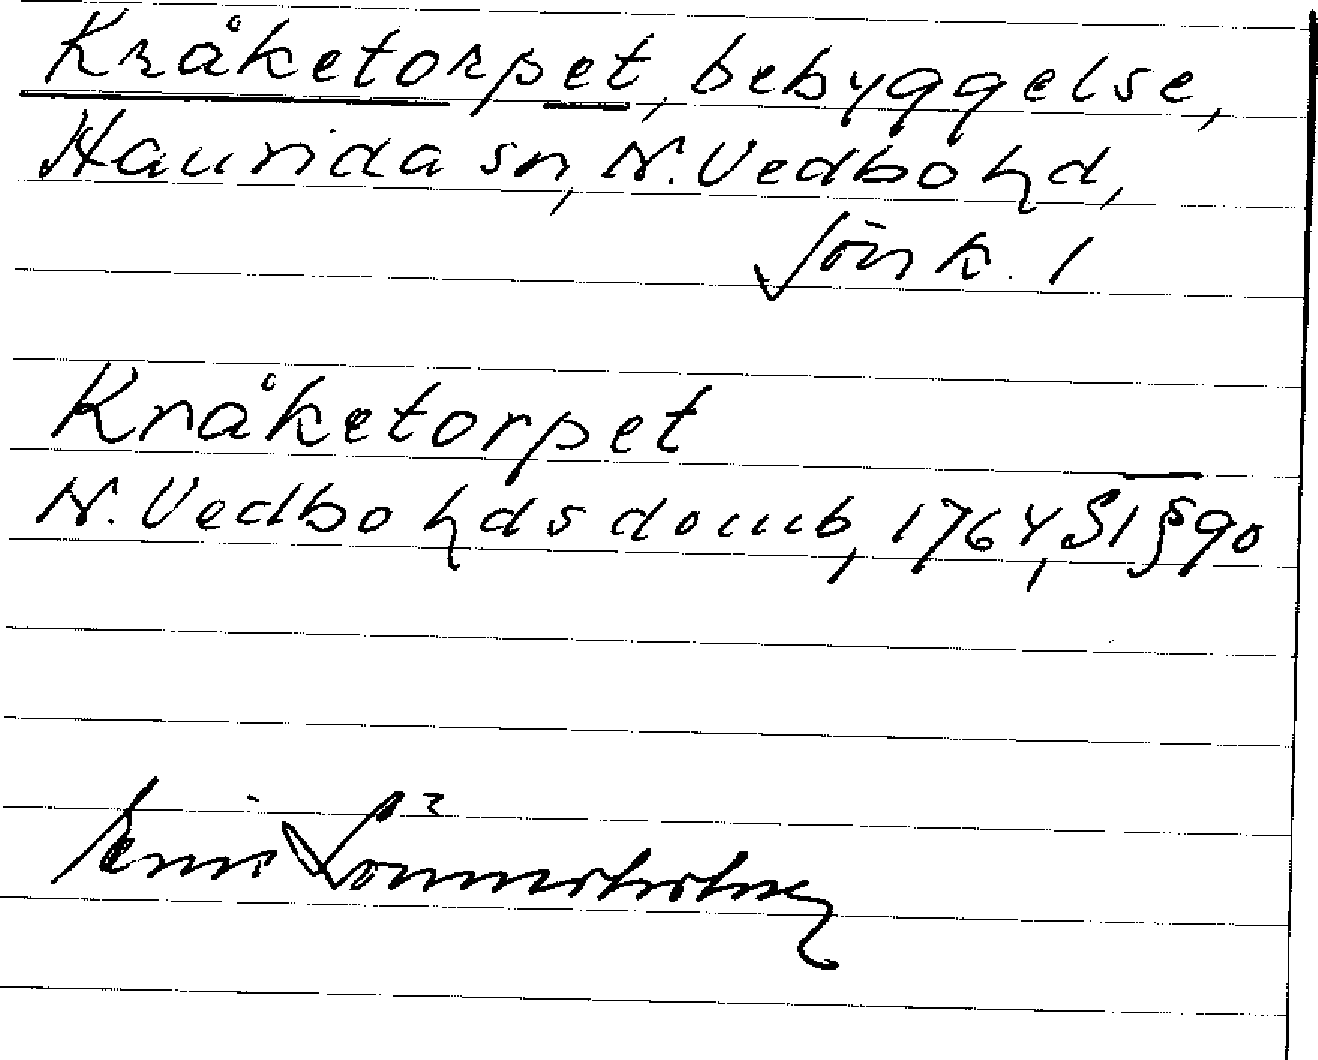 Kråketorpet, bebyggelse,
Haurida sn, N. Vedbo hd,
Jönk. l
Kråketorpet
N. Vedbo hds domb, 1764, S1 § 90